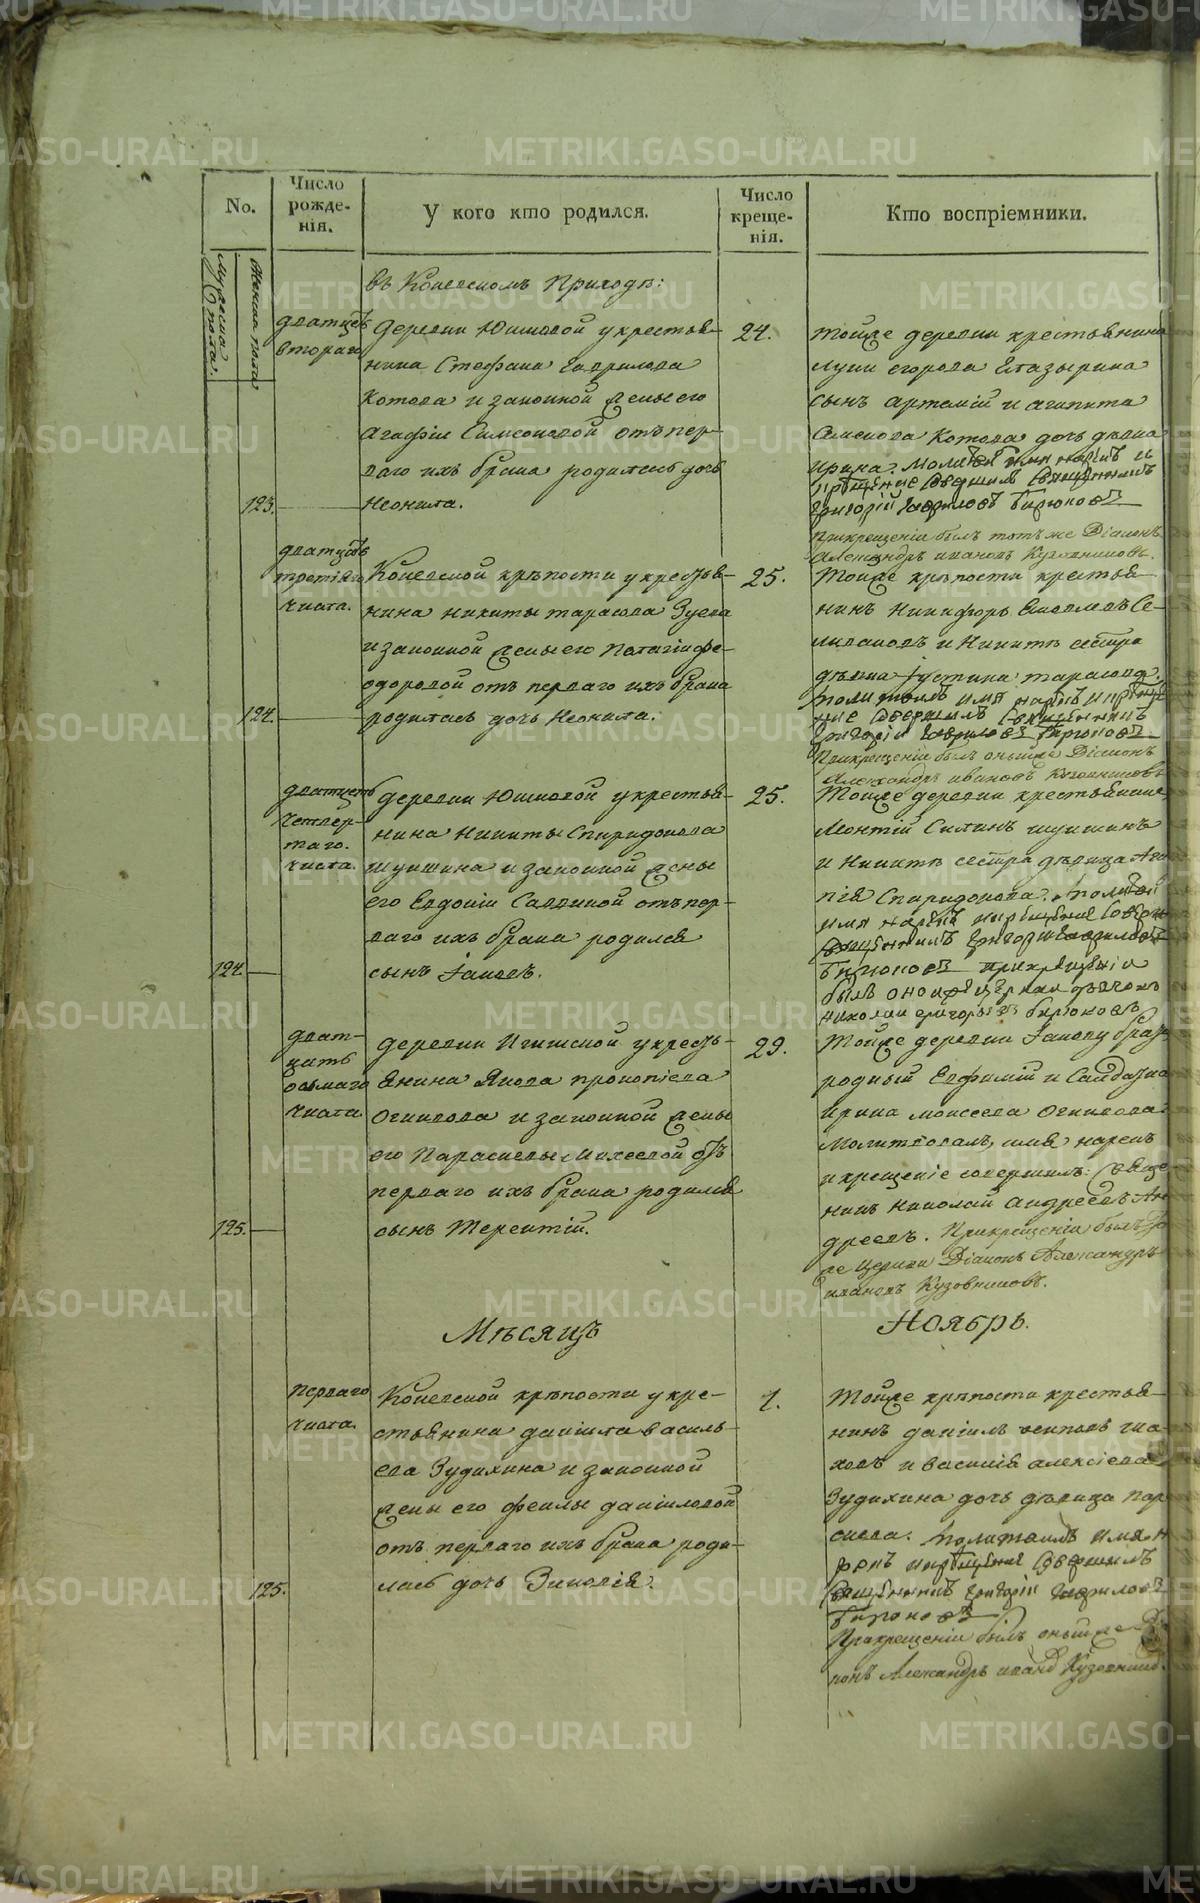 No.
Число рожде-
нія.
У кого кто родился.
Число креще-
нія.
Кто воспріемники.
Мужеска пола.
Женска пола
въ Коневскомъ Приходѣ:
дватцеть
втораго
деревни Юшковой у крестья-
нина Стефана Гаврилова
Котова и законной жены его
Агафіи Симеоновой отъ пер-
ваго ихъ брака родилась дочь
123.
Неонила.
24.
Тойже деревни крестьянина
Луки егорова
сынъ артемій и агапита
Котова дочь дѣвка
ирина. Молитвой имя нарекъ и
крещеніе совершилъ Священникъ
Григорій Гавриловъ Бирюковъ
При крещеніи былъ тотъ же Діаконъ
Александръ ивановъ Кузовниковъ.
дватцеть
третьяго
числа.
Коневской крѣпости у крестья-
нина никиты тарасова Зуева
и законной жены его Пелагіи фе-
одоровой отъ перваго ихъ брака
124.
родилась дочь Неонила.
25.
Тойже крѣпости крестья-
нинъ Никифоръ Се-
ливановъ и Никитѣ сестра
дѣвка Іустина тарасова.
молитвомъ имя нарекъ и креще-
ние совершилъ Священникъ
Григорій Гавриловъ Бирюковъ
При крещеніи былъ оныйже Діаконъ
Александръ ивановъ Кузовниковъ
дватцеть
четвер-
таго.
числа.
деревни Юшковой у крестья-
нина Никиты Спиридонова
Шукшина и законной жены
его Евдокіи Саввиной отъ пер-
ваго ихъ брака родился
124
сынъ Іаковъ.
25.
Тойже деревни крестьянинъ
Леонтій Силинъ шукшинъ
и Никитѣ сестра дѣвица Ага
пія Спиридонова. молитвой
имя нарекъ и крещеніе Соверши
Священникъ Григорій Гавриловъ
Бирюковъ при крещеніи
былъ оной же церкви дьячокъ
николай григорьевъ бирюковъ
дват-
цать
осьмаго
числа
деревни Игишской у кресть-
янина Якова прокопіева
Огнивова и законной жены
его Параскевы Михеевой отъ
перваго ихъ брака родился
125.
сынъ Терентій.
29.
Тойже деревни Іакову брат
родный Евфимій и Салдатка
ирина моисеева Огнивова
Молитвовалъ, имя нарекъ
и крещеніе совершилъ: Свяще-
никъ Николай андреевъ Ан
дреевъ. При крещеніи былъ то
же церкви Діаконъ Александръ
ивановъ Кузовниковъ.
Мѣсяцъ
Ноябрь.
перваго
числа.
Коневской крѣпости у кре-
стьянина даніила василь-
ева Зудихина и законной
жены его феклы даніиловой
отъ перваго ихъ брака роди-
125.
лась дочь Зиновія.
1.
Тойже крѣпости крестья-
нинъ даніилъ осиповъ гла-
ховъ и василія алексіева
Зудихина дочь дѣвица пар
скева. молитвилъ имя н
рекъ и крещение Совершилъ
Священникъ Григорій Гавриловъ
Бирюковъ
При крещеніи былъ оныйже Діа
конъ Александръ иванов Кузовников.
METRIKI.GASO-URAL.RU